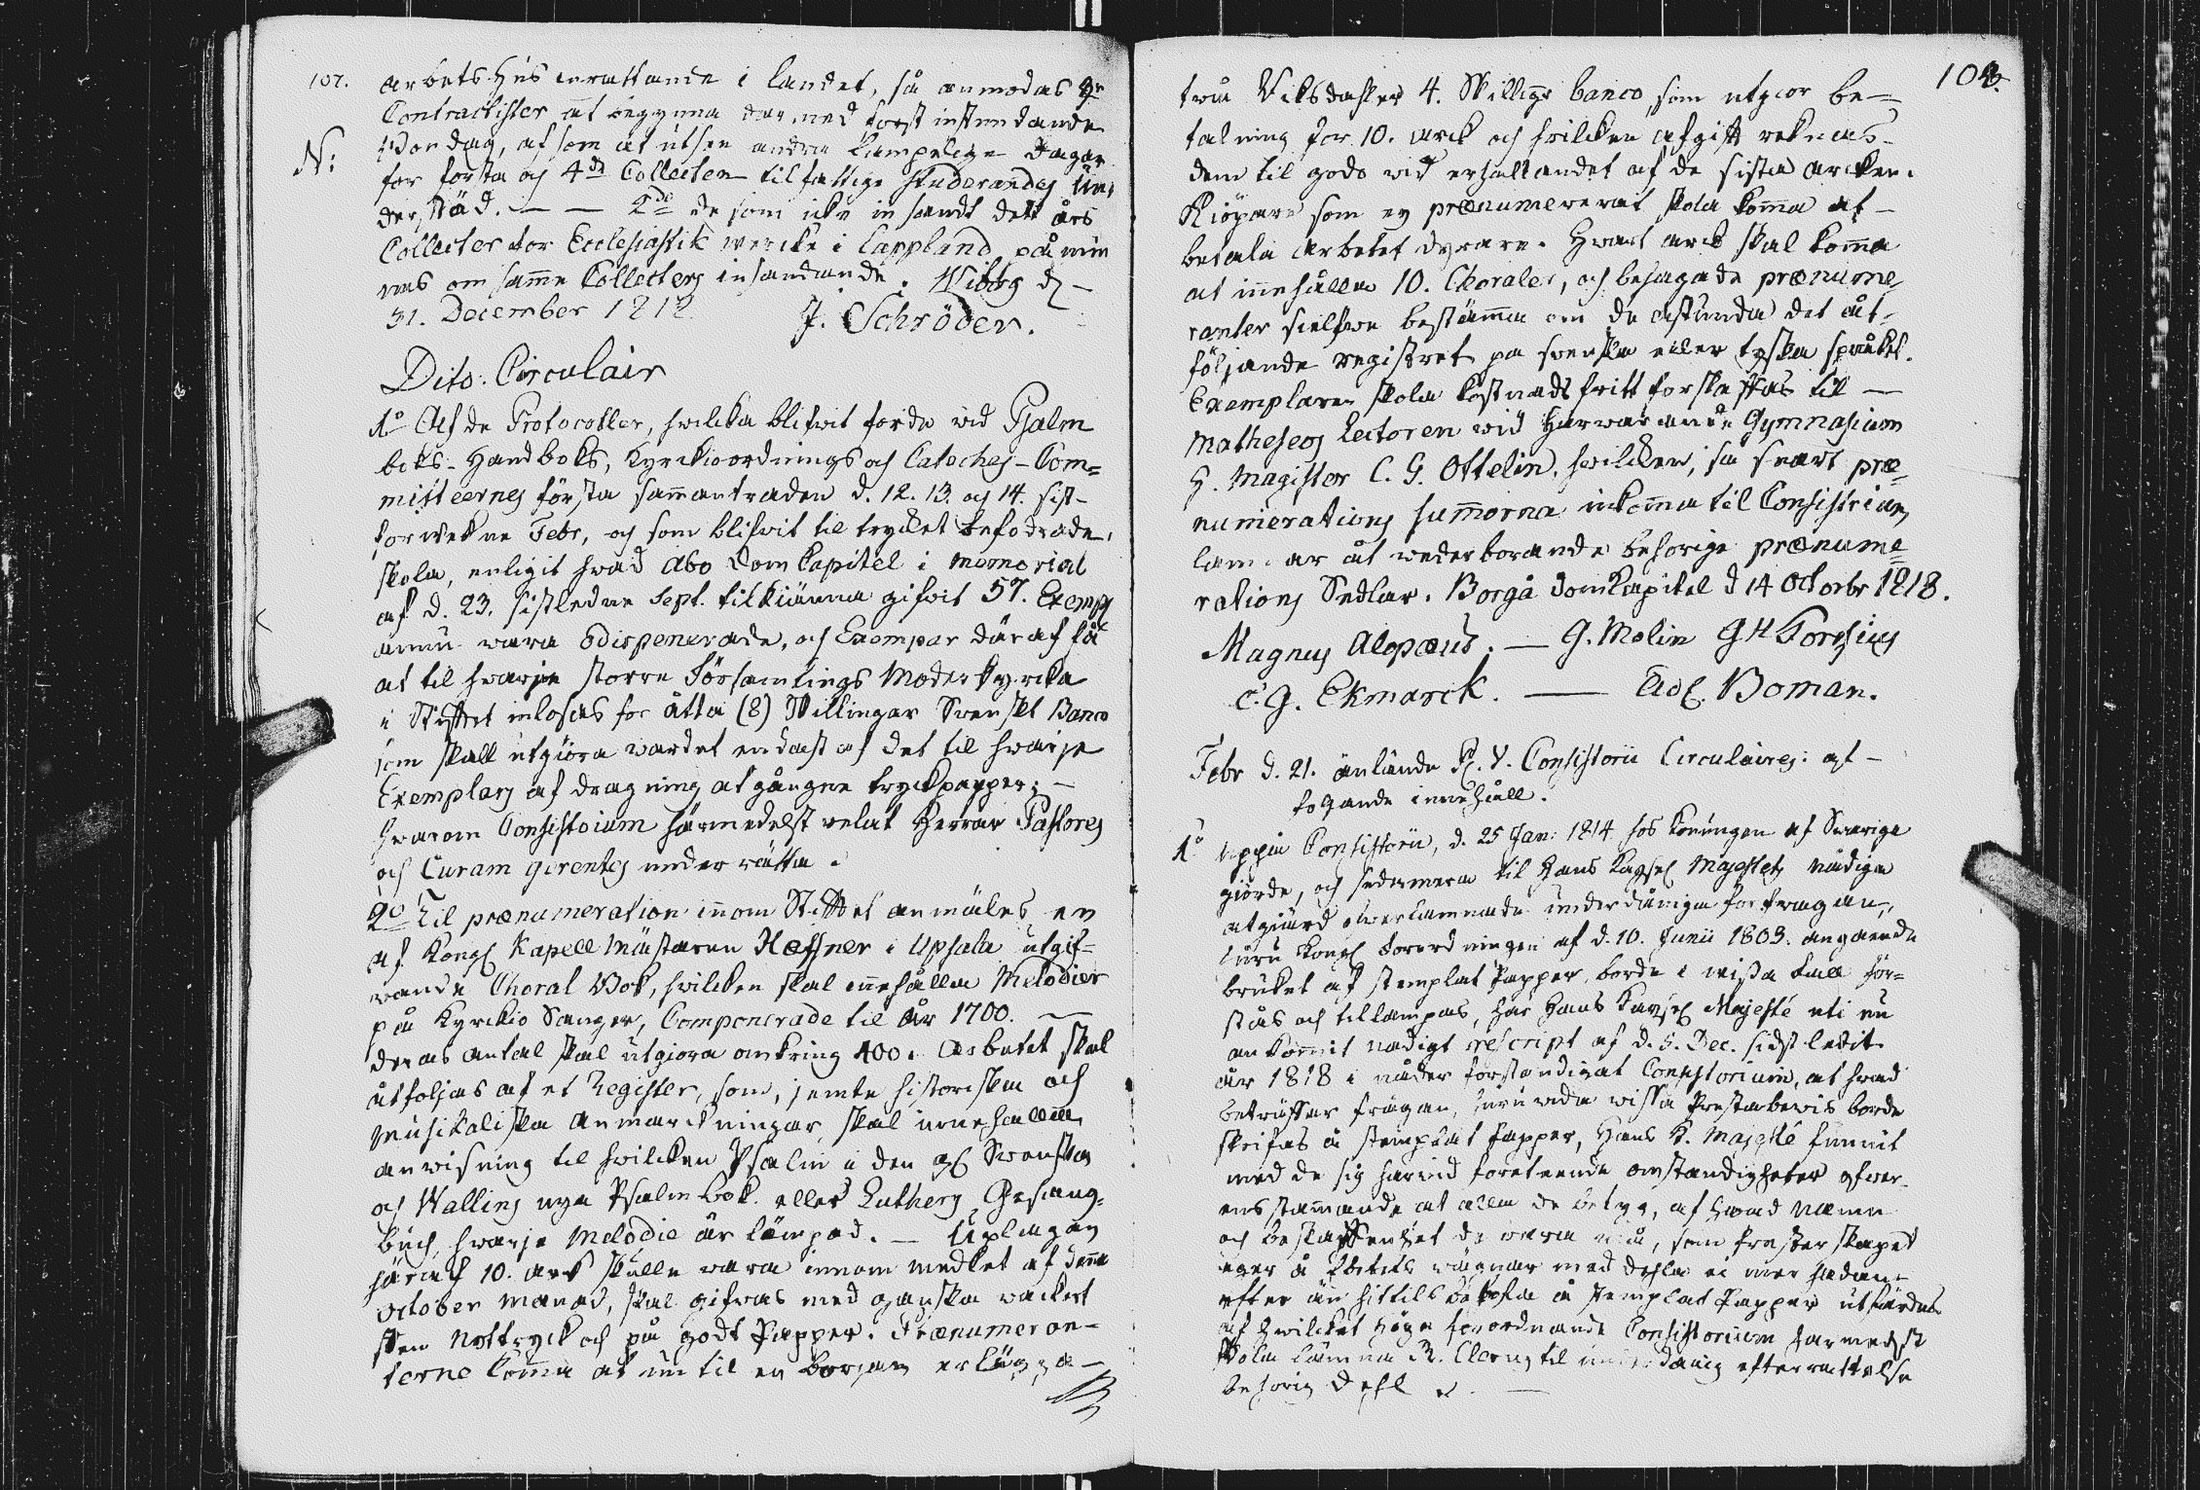 107.
arbets Hus inrattande i landet, så anmodas Hr
Contractister at begynna dermed först instundande
N:
Söndag, afsom at utsee andra lämpelige dagar
for forsta och 4de Collecten til fattige studerandes un-
derstöd. — — 2do de som icke insandt detta års
Collecter for Ecclesiastik wercke i Lappland påmin
nas om samme Collecters insandande. Wiborg d. —
31. December 1818
J. Schröder.
Dito. Circulair
1o Af de Protocoller, hvilcka blifvit forde vid Psalm
boks- Handboks, Kyrckioordnings och Cateches-Com=
mitteernes första sammantraden d. 12. 13. och 14. sist-
forwekne Febr, och som blifvit til trycket befodrade,
skola, enligit hvad Abo Dom Capitel i memorial
af d. 23. sistledne Sept. tilkiänna gifvit 57. Exempl
annu vara odispenerade, och Exemplar däraf få
at til hvarje storre Församlings Moderkyrcka
i Stiftet inlosas for åtta (8) Skillingar Svenskt Banco
som skall utgiöra wärdet endast af det til hvarje
Exemplars afdragning atgångne tryckpapper; —
Hvarom Consistoium härmedelst velat Herrar Pastores
och Curam gerentes underrätta.
2o Til prænumeration innom Stiftet anmäles en
af Kongl Kapell Mästaren Hæffner i Upsala utgif=
vande Choral Bok, hvilcken skal innehålla Melodier
på Kyrckio Sanger, Componerade til år 1700. —
deras antal skal utgiora omkring 400. Arbetet skal
åtfoljas af et Register, som, jemte historiska och
Musikaliska anmarckningar, skal innehalla
anvisning til hvilcken Psalm i den gl Svenska
och Wallins nya Psalmbok eller Luthers Gesang=
buch, hvarje Melodie är lämpad. — Uplagan
häraf 10. ark skulle vara innom medlet af denna
October manad, skal gifvas med ganska vackert
sten nottryck och på godt Papper. Prænumeran-
terne komma at nu til en borjan erlägga —
108.
två Riksdahler 4. Skillingr banco, som utgior be-
talning for 10. arck och hvilcken afgift reknas
dem til godo wid erhallandet af de sista arcken.
Kiöpare som ey prænumererat skola komma at
betala arbetet dyrare. Hvart arck skal komma
at innehålla 10. Choraler, och behagade prænume
ranter sielfve bestämma om de åstunda det åt-
följande registret pa svenska eller tyska språket.
Exemplaren skola kostnads fritt forskaffas til —
Matheseos Lectoren wid harwarande Gymnasium
H. Magister C. G. Ottelin, hvilcken, så snart præ
numerations summorna inkomma til Consistorium,
lemnar åt wederborande behorige prænume
rations Sedlar. Borgå Domkapitel d 14 Octorbr 1818.
Magnus Alopæus. — G. Molin G H Borgius
C. G. Ekmarck. — Adl. Boman.
Febr d. 21. anlände Pl. V. Consistorii Circulaires: af —
foljande innehåll.
1o uppå Consistorii, d. 25 Jan: 1814 hos Konungen af Swerige
giorde, och sedermera til Hans Kayserl Majestets nådiga
atgiärd öfverlämnade underdåniga förfrågan,
huru Kongl Forordningen af d. 10. Junii 1803. angaende
bruket af stemplat Papper, borde i wissa fall för-
stås och tillampas, har Hans Kayserl Majesté uti nu
ankommit nadigt rescript af d. 5. Dec. sidst ledit
år 1818 i nåder förständigat Consistorium, at hvad
beträffar frågan, huruvida wissa Prestabevis borde
skrifvas å stemplat Papper, Hans K. Majesté funnit
med de sig harvid foreteende omständigheter öfver-
ens stammande at alla de betyg, af hwad namn
och beskaffenhet de vara må, som Presterskapet
äger å Embetets vägnar meddehla ei mer hädan-
efter än hittils böra å stemplat Papper utfärdas
af hwilcket höga forordnande Consistorium harmedelst
skola lämna R. Clerus til underdånig efterrattelse
behorig dehl